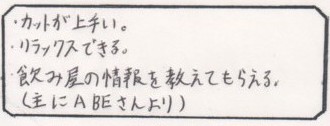 ・カットが上手い。
・リラックスできる。
・飲み屋の情報を教えてもらえる。
(主にABEさんより)